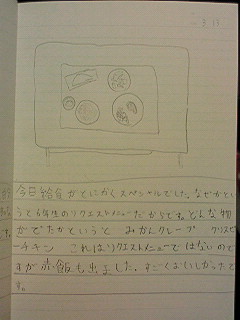 今日給食がとにかくスペシャルでした。なぜかとい
うと6年生のリクエストメニューだからです。どんな物
がでたかというと みかんクレープ クリスピ
ーチキン これはリクエストメニューではないので
すが赤飯も出ました。すごくおいしかったで
す。